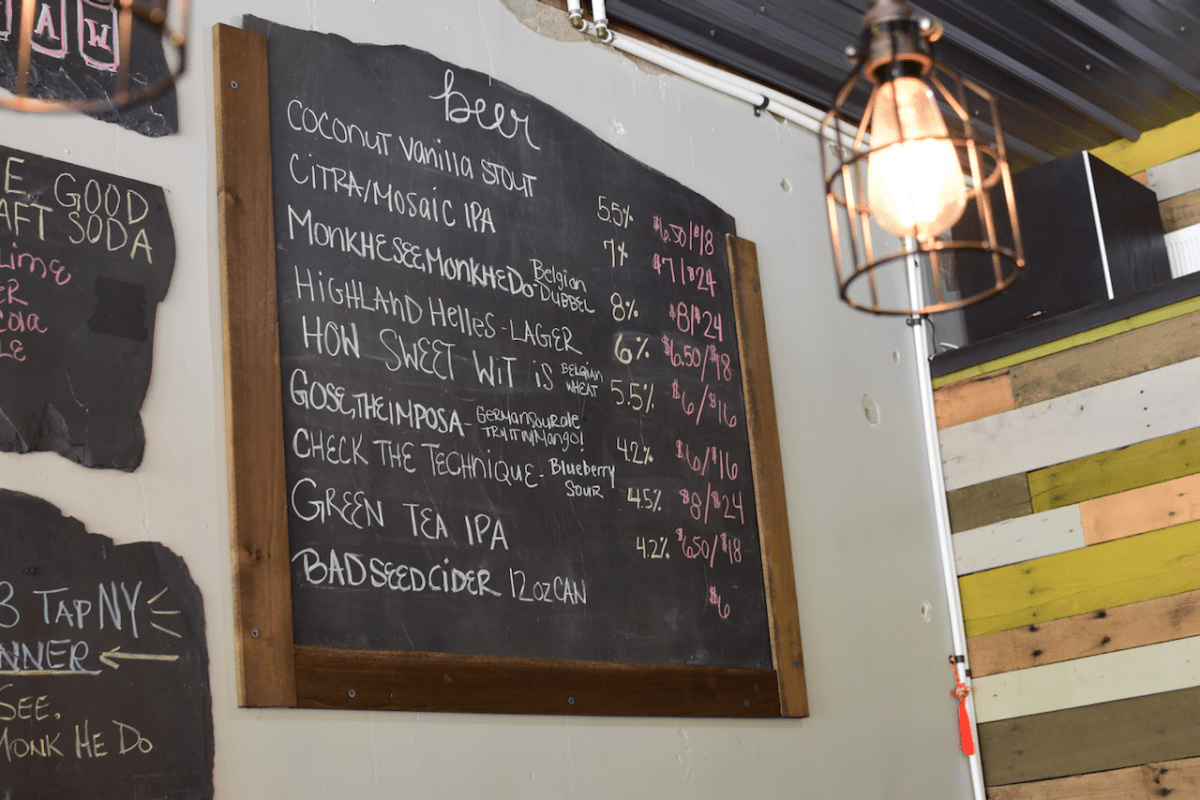 A W
E GOOD
AFT SODA
Lime
ER
Cola
LE
3 TAP NY
NNER
SEE,
MONK HE DO
beer
COCONUT Vanilla STOUT 5.5% $6.50/$18
CiTRA/MOSAiC IPA 7% $7/$24
MONKHESEEMONKHEDO- Belgian DUBBEL 8% $8/$24
HiGHLAND HelleS - LAGER 6% $6.50/$18
HOW SWEET WiT iS BELGIAN WHEAT 5.5% $6/$16
GOSE,THEIMPOSA- GERMANSOURALE 4.2% $6/$16
CHECK THE TECHNIQUE- Blueberry SOUR 4.5% $8/$24
GREEN TEA IPA 4.2% $650/$18
BADSEEDCiDER 12OZCAN $6